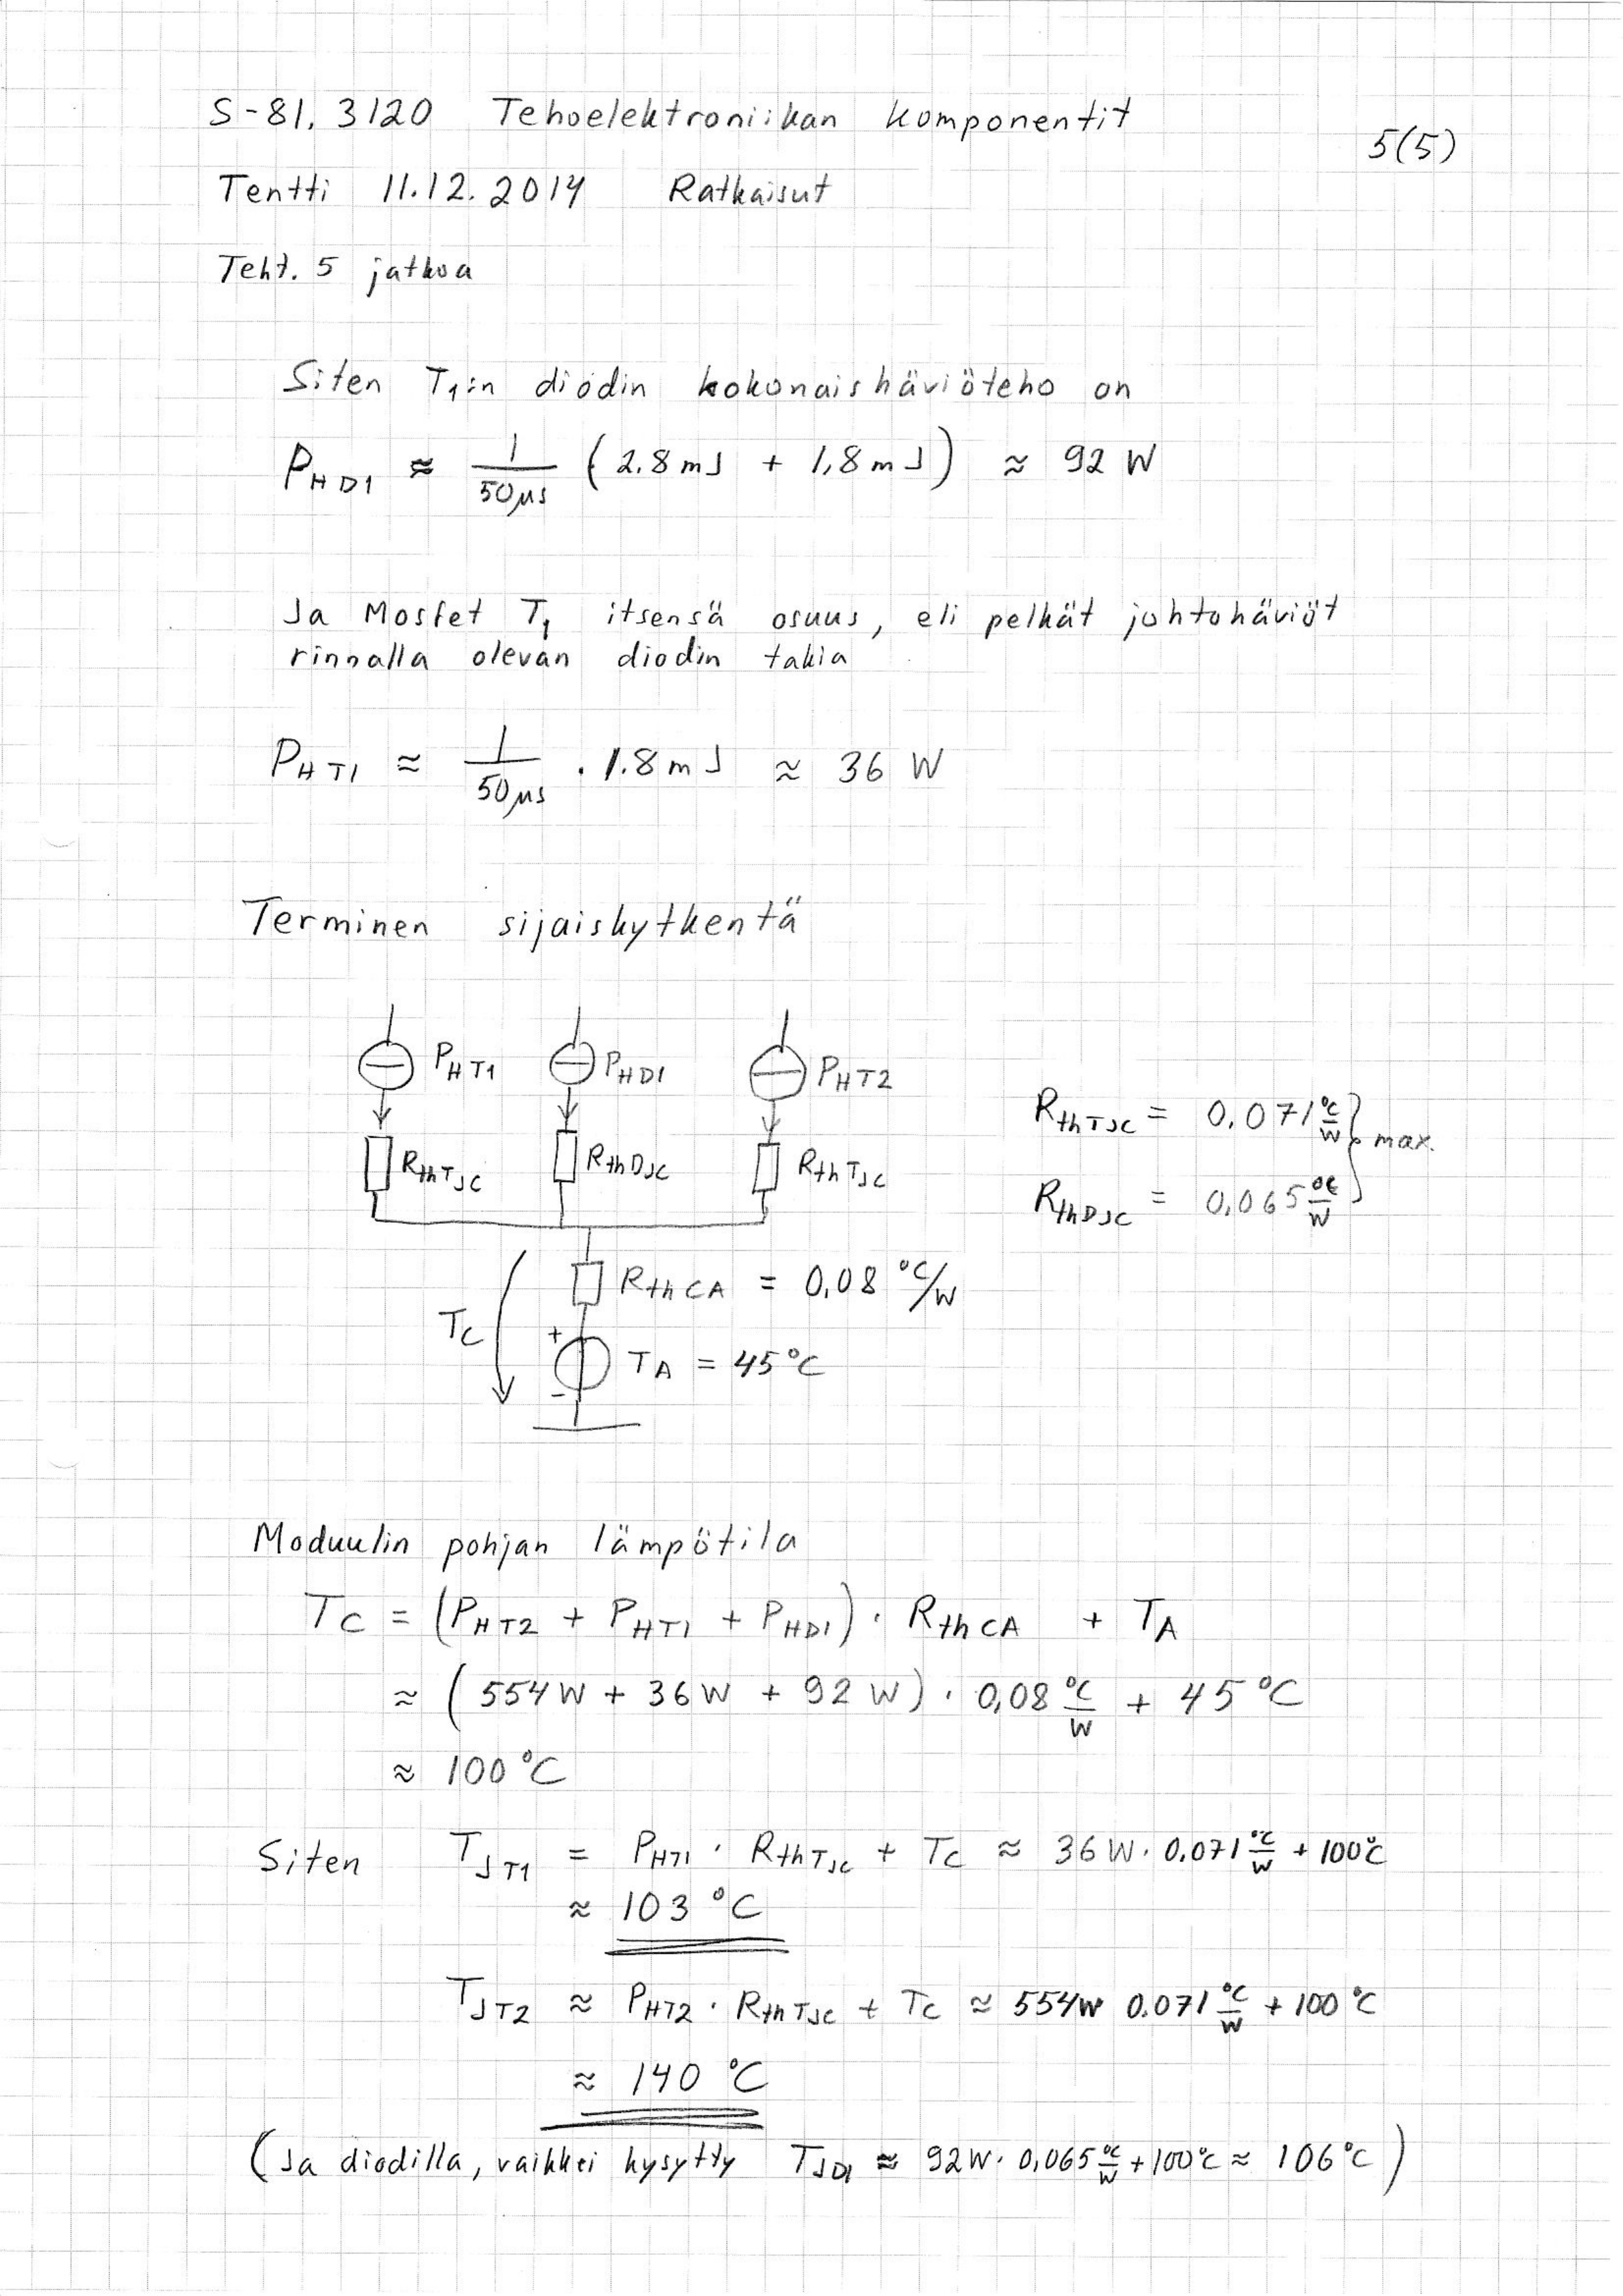 S-81.3120 Tehoelektroniikan komponentit
5(5)
Tentti 11.12.2014 Ratkaisut
Teht. 5 jatkoa
Siten T1:n diodin kokonaishäviöteho on
P_HD1 ≈ 1/50µs (2.8mJ + 1,8mJ) ≈ 92 W
Ja Mosfet T1 itsensä osuus, eli pelkät johtohäviöt
rinnalla olevan diodin takia
P_HT1 ≈ 1/50µs · 1.8mJ ≈ 36 W
Terminen sijaiskytkentä
P_HT1 P_HD1 P_HT2
R_thTJC = 0,071 °C/W
max.
R_thTJC R_thDJC R_thTJC
R_thDJC = 0,065 °C/W
R_thCA = 0,08 °C/W
T_C
+
T_A = 45°C
-
Moduulin pohjan lämpötila
T_C = (P_HT2 + P_HT1 + P_HD1) · R_thCA + T_A
≈ (554W + 36W + 92W) · 0,08 °C/W + 45°C
≈ 100°C
Siten T_JT1 = P_HT1 · R_thTJC + T_C ≈ 36W · 0.071 °C/W + 100°C
≈ 103 °C
T_JT2 ≈ P_HT2 · R_thTJC + T_C ≈ 554W 0.071 °C/W + 100°C
≈ 140 °C
(Ja diodilla, vaikkei kysytty T_JD1 ≈ 92W · 0,065 °C/W + 100°C ≈ 106°C)